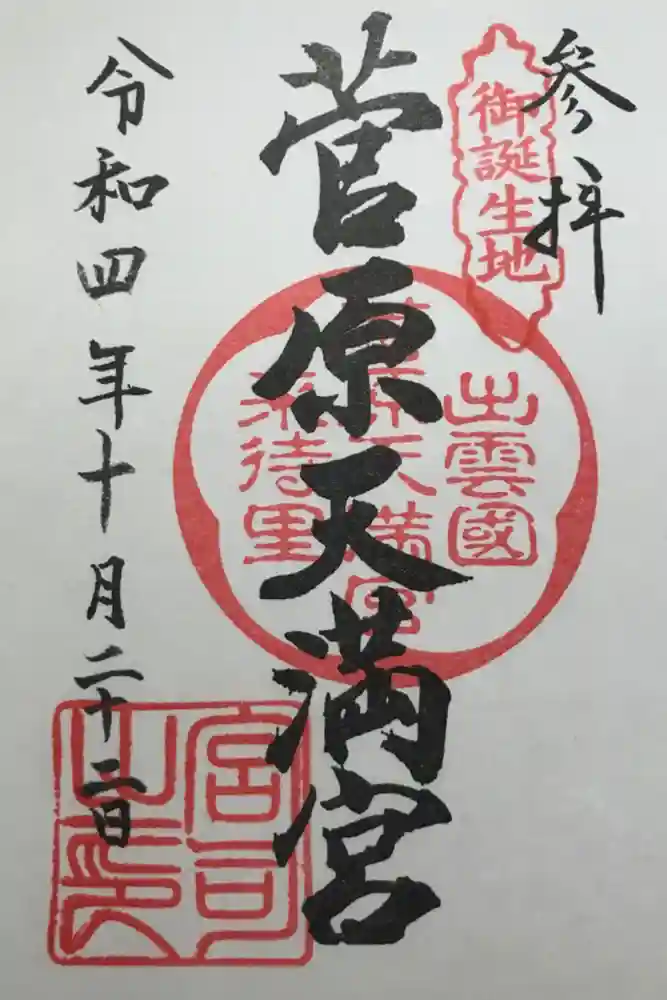 参拝
御誕生地
出雲國
菅原天満宮
来待里
菅原天満宮
令和四年十月二十二日
宮司之印